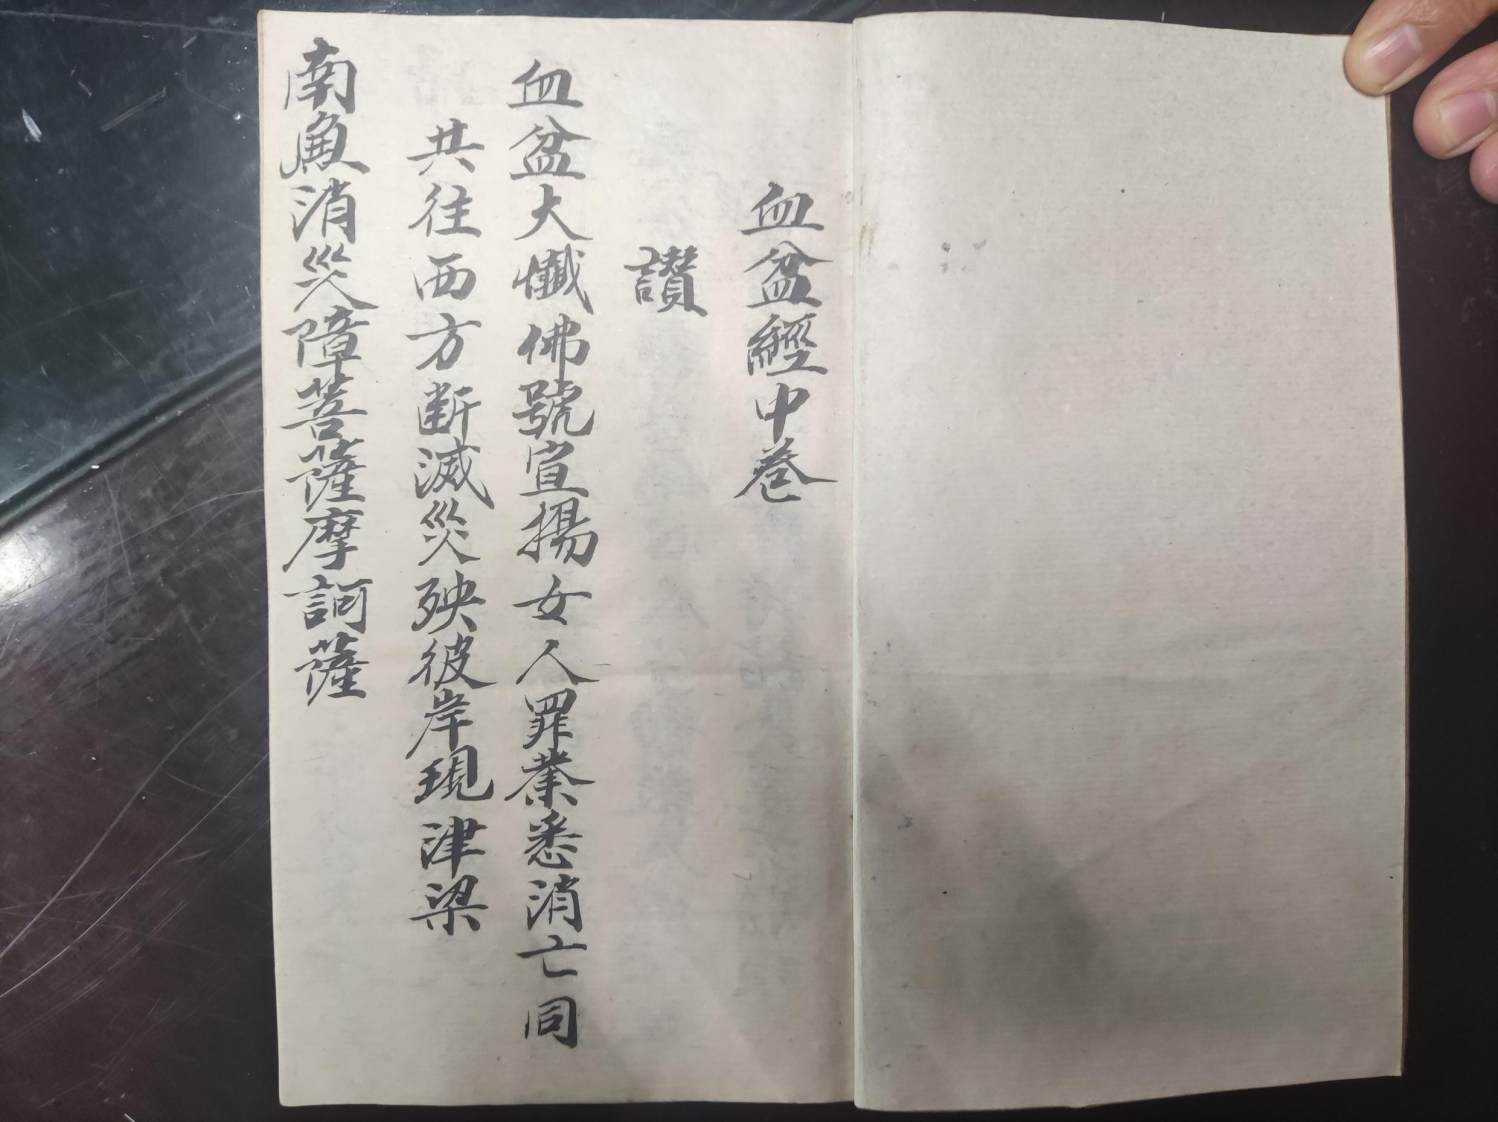 血盆經中卷
讚
血盆大懺佛號宣揚女人罪業悉消亡同
共往西方断滅災殃彼岸現津梁
南無消災障菩薩摩訶薩